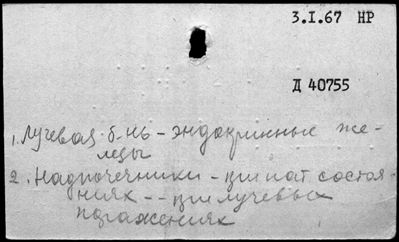 3.I.67 НР
Д 40755
1. Лучевая б-нь – эндокринные же-
лезы
2. Надпочечники – при пат. состоя-
ниях -- при лучевых
поражениях